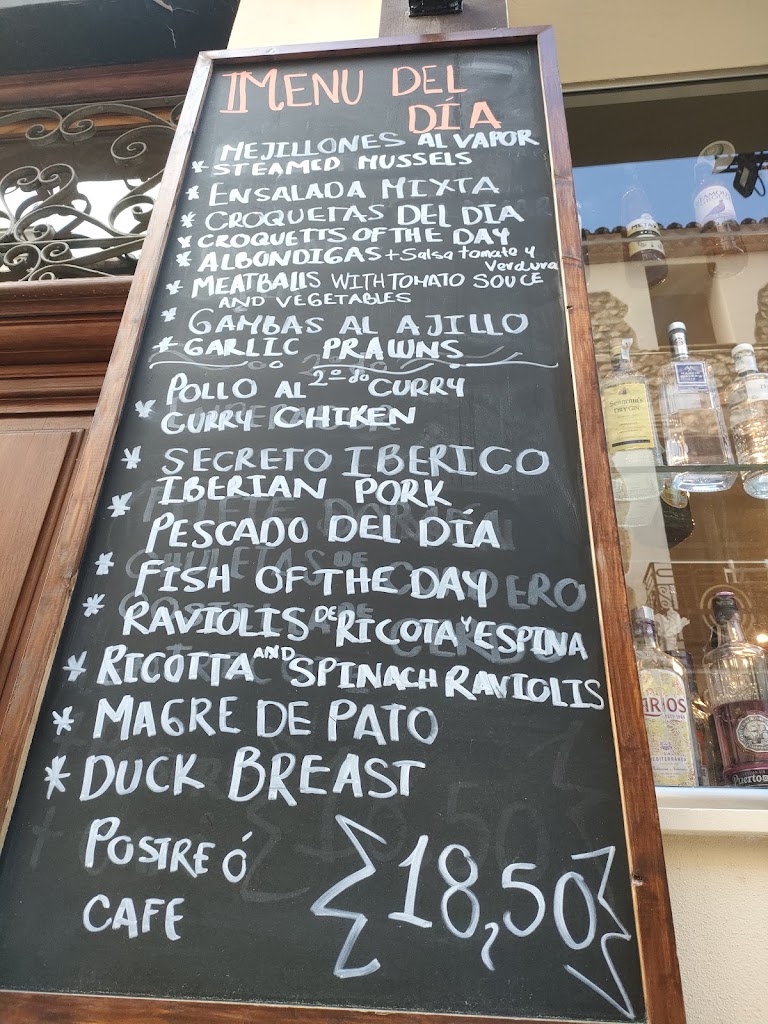 MENU DEL
DÍA
MEJILLONES AL VAPOR
* STEAMED MUSSELS
* ENSALADA MIXTA
* CROQUETAS DEL DIA
* CROQUETTS OF THE DAY
* ALBONDIGAS + Salsa tomate y
Verdura
* MEATBALLS WITH TOMATO SOUCE
AND VEGETABLES
* GAMBAS AL AJILLO
* GARLIC PRAWNS
2º
POLLO AL CURRY
* CURRY CHIKEN
* SECRETO IBERICO
* IBERIAN PORK
PESCADO DEL DÍA
* FISH OF THE DAY
* RAVIOLIS DE RICOTA Y ESPINA
* RICOTTA AND SPINACH RAVIOLIS
* MAGRE DE PATO
* DUCK BREAST
POSTRE Ó
CAFE
18,50
Puerto